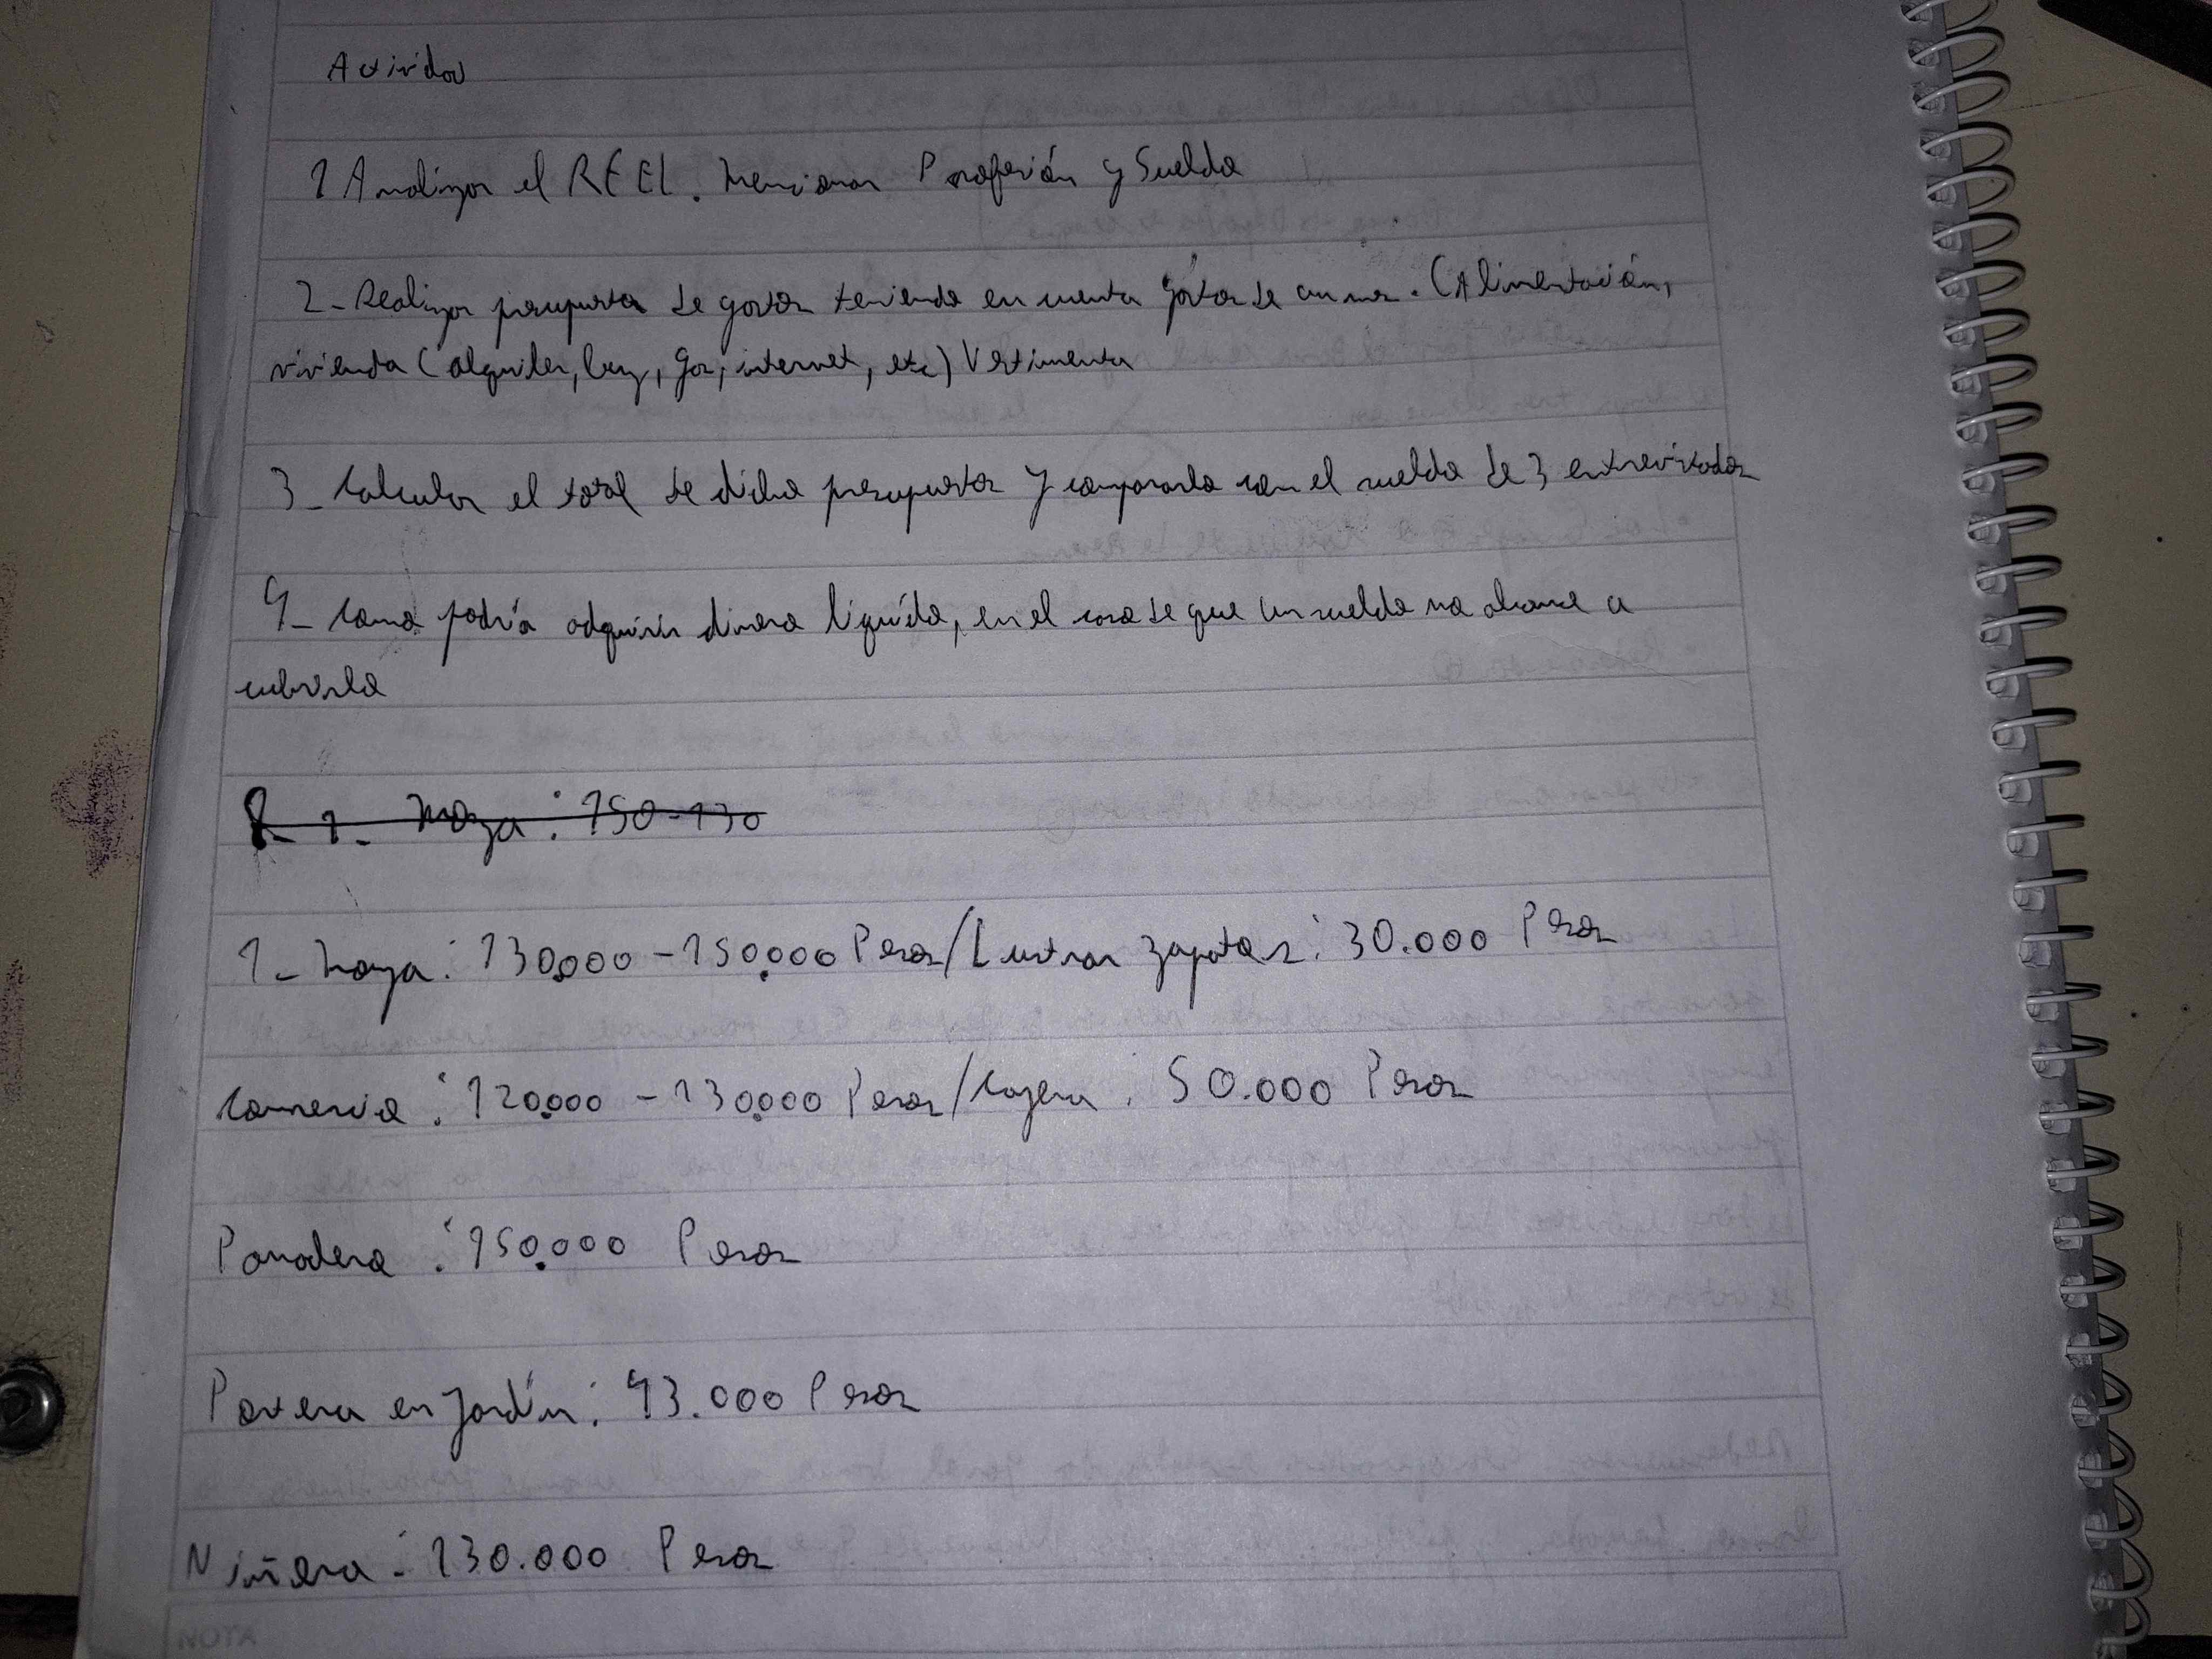 Actividad
1 Analizar el REEL. Mencionar Profesión y Sueldo
2- Realizar presupuesto de gastos teniendo en cuenta gastos de un mes. (Alimentación,
vivienda (alquiler, luz, gas, internet, etc) Vestimenta
3- Calcular el total de dicho presupuesto y compararlo con el sueldo de 3 entrevistados
4- Como podría adquirir dinero líquido, en el caso de que un sueldo no alcance a
cubrirlo
R- 1- Moza: 150-130
1- Moza: 130.000 - 150.000 Pesos/Lustrar zapatos: 30.000 Pesos
Comercio: 120.000 - 130.000 Pesos/Cajera: 50.000 Pesos
Panadero: 150.000 Pesos
Portera en Jardín: 43.000 Pesos
Niñera: 130.000 Pesos
NOTA